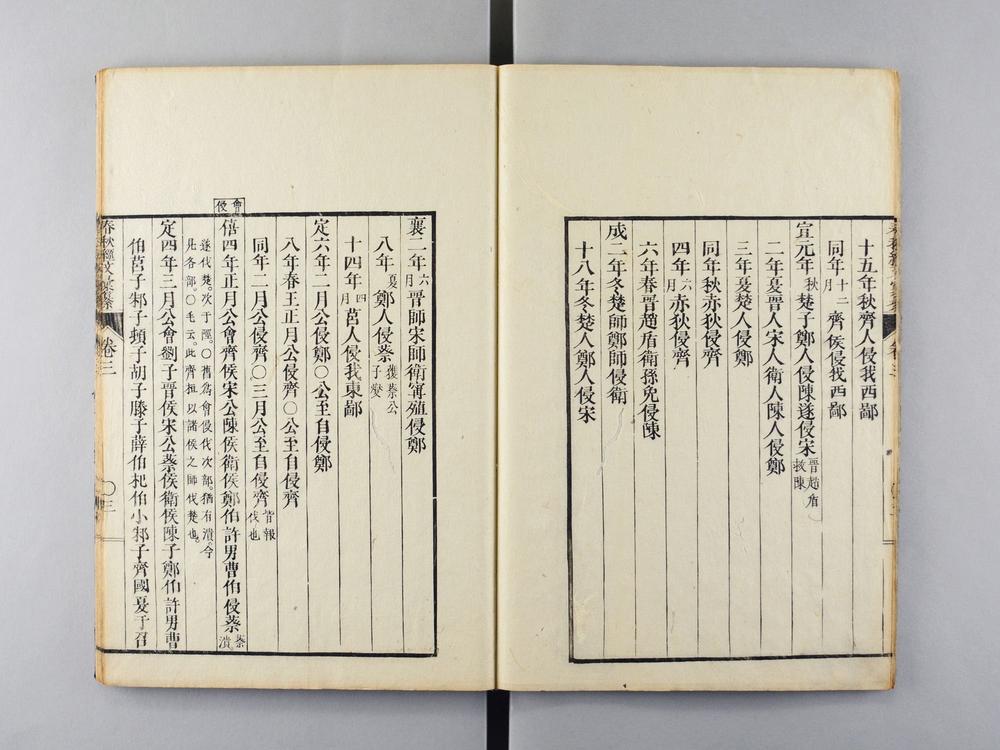 十五年秋齊人侵我西鄙
同年十二月齊侯侵我西鄙
宣元年秋楚子鄭人侵陳遂侵宋晉趙盾救陳
二年夏晉人宋人衛人陳人侵鄭
三年夏楚人侵鄭
同年秋赤狄侵齊
四年六月赤狄侵齊
六年春晉趙盾衛孫免侵陳
成二年冬楚師鄭師侵衛
十八年冬楚人鄭人侵宋
襄二年六月晉師宋師衛甯殖侵鄭
八年夏鄭人侵蔡獲蔡公子燮
十四年四月莒人侵我東鄙
定六年二月公侵鄭〇公至自侵鄭
八年春王正月公侵齊〇公至自侵齊
同年二月公侵齊〇三月公至自侵齊皆報伐也
會侵
僖四年正月公會齊侯宋公陳侯衛侯鄭伯許男曹伯侵蔡蔡潰
遂伐楚。次于陘。〇舊爲會侵伐次部。猶有潰。今
見各部。〇毛云。此齊桓以諸侯之師伐楚也。
定四年三月公會劉子晉侯宋公蔡侯衛侯陳子鄭伯許男曹
伯莒子邾子頓子胡子滕子薛伯杞伯小邾子齊國夏于召
春秋經文彙纂
卷三
〇三